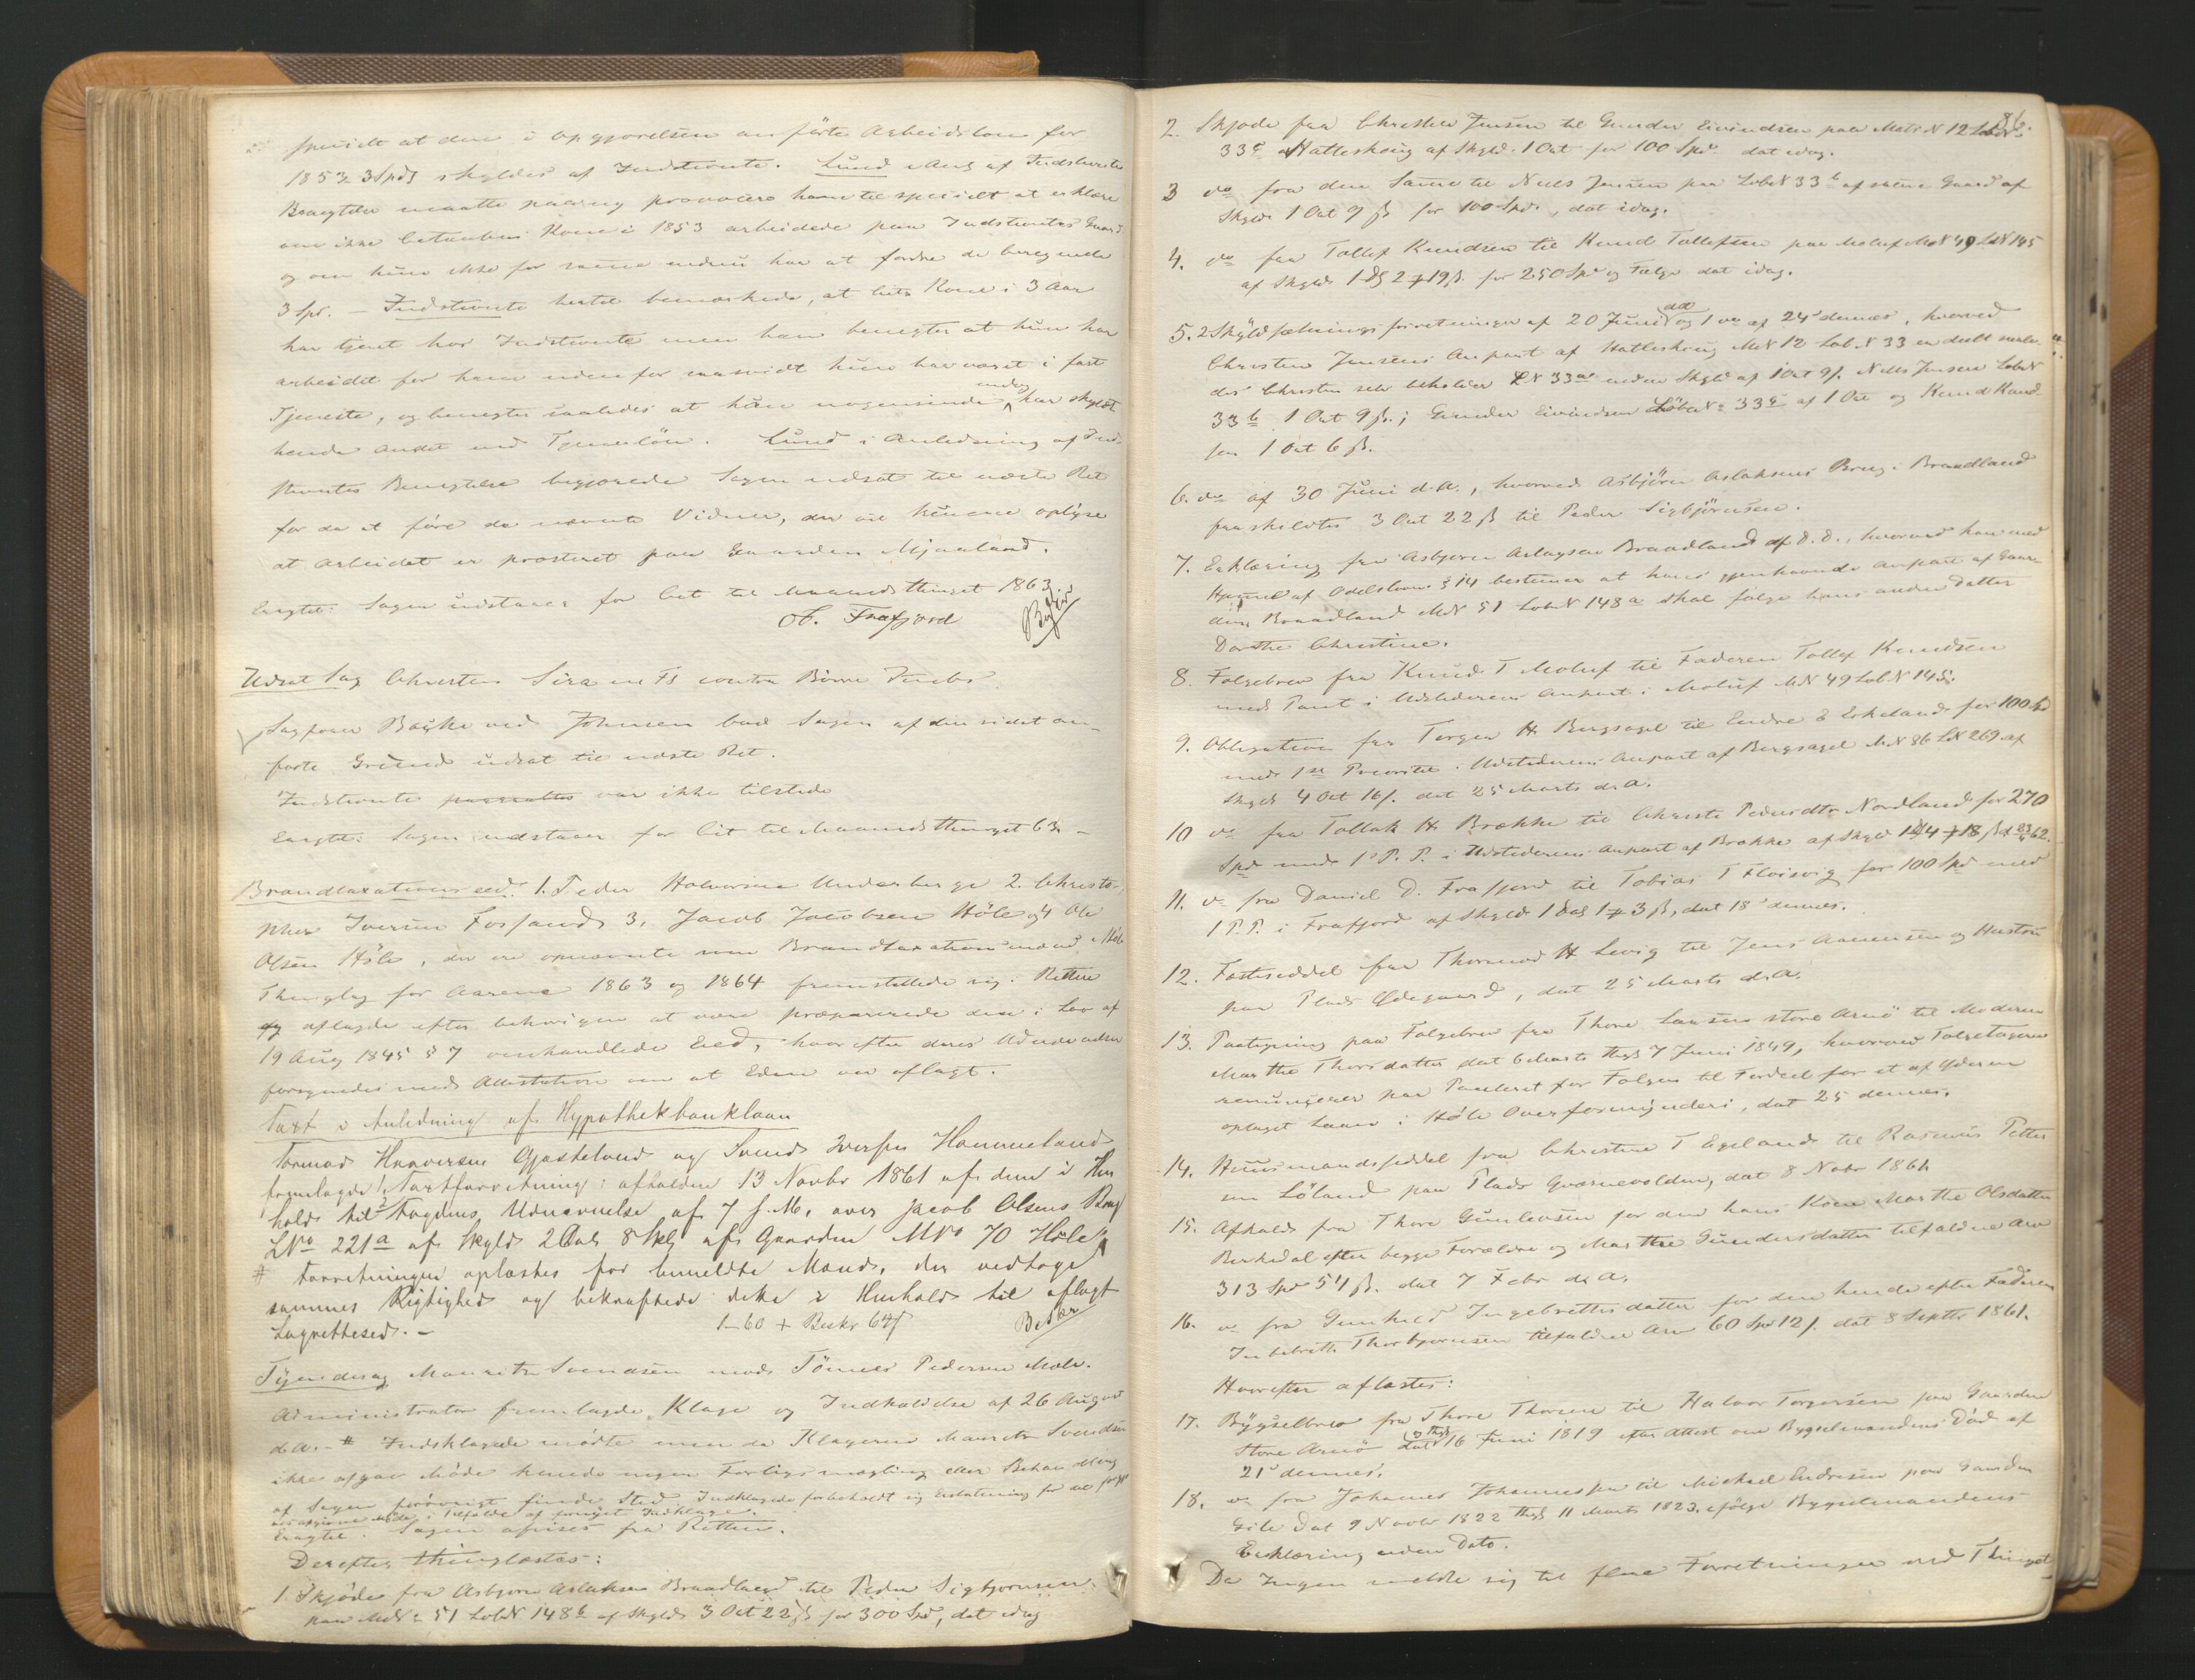 specielt at den i Opgjørelsen anførte Arbeidsløn for
1853 3 Spd skyldes af Indstevnte. Lund i Anl af Indstevntes
Benægtelse maatte paany provocere ham til specielt at erklære
om ikke Citantens Kone i 1853 arbeidede paa Indstevntes Gaard
og om hun ikke for samme endnu har at fordre de beregnede
3 Spd. – Indstevnte hertil bemærkede, at Cits Kone i 3 Aar
har tjent hos Indstevnte men han benegter at hun har
arbeidet for ham udenfor saavidt hun har været i fast
Tjeneste, og benegter saaledes at han nogensinde har skyldt
hende andet end Tjenerløn. Lund i Anledning af Ind-
stevntes Benegtelse begjærede Sagen udsat til næste Ret
for da at føre de nævnte Vidner, der vil kunne oplyse
at Arbeidet er præsteret paa Gaarden Mjaaland.
Eragtet: Sagen udstaaer for Cit til Maanedsthinget 1863
Ol. Frafjord
Udsat Sag Christen Sira m Fl contra Børre
Sagfører Bakke ved Johnsen bad Sagen af den sidst an-
førte Grund udsat til næste Ret.
Indstevnte var ikke tilstede
Eragtet: Sagen udstaaer for Cit til Maanedsthinget 63 –
Brandtaxationseed: 1. Peder Halvorsen Underberge 2. Christo-
pher Iversen Fossand 3. Jacob Jacobsen Høle og 4 Ole
Olsen Høle, der ere opnævnte som Brandtaxationsmænd i Høle
Thinglag for Aarene 1863 og 1864 fremstillede sig i Retten
og aflagde efter behørigen at være præparerede den i Lov af
19 Aug 1845 § 7 omhandlede Eed, hvorefter deres Udnævnelser
forsynedes med Attestation om at Eden var aflagt.
Taxt i Anledning af Hypothekbanklaan
Tormod Halvorsen Gjæsteland og Svend Iversen Hommeland
fremlagde Taxtforretning afholden 13 Novbr 1861 af dem i Hen-
hold til Fogdens Udnævnelse af 7 s. M. over Jacob Olsens Brug
LNo 221a af Skyld 2 Dal 8 Skl af Gaarden MNo 70 Høle
# Forretningen oplæstes for bemeldte Mænd, der vedtoge
sammes Rigtighed og bekræftede dette i Henhold til aflagt
Lagrettesed. –
1–60 + Beskr 64 Betalt
Tyendesag Mauritz Svendsen mod Tønnes Pedersen Mæle.
Administrator fremlagde Klage og Indkaldelse af 26 August
d.A. – # Indklagede mødte men da Klageren Mauritz Svendsen
ikke afgav Møde kunde ingen Forligsmægling eller Behandling
af Sagen forøvrigt finde Sted. Indklagede forbeholdt sig Erstatning for det
Møde i Tilfælde af fornyet Indklage.
Eragtet: Sagen afvises fra Retten.
Derefter thinglæstes:
1. Skjøde fra Asbjørn Aslaksen Braadland til Peder Sigbjørnsen
paa MNo 51 LøbN 148b af Skyld 3 Ort 22 ß for 300 Spd, dat idag
86.
2. Skjøde fra Christen Jensen til Gunder Eivindsen paa Matr N 12 LøbN
33c Hatleskoug af Skyld 1 Ort for 100 Spd dat idag.
3 do fra den Samme til Niels Jensen paa LøbN 33b af samme Gaard af
Skyld 1 Ort 9 ß for 100 Spd, dat idag.
4. do fra Tollef Knudsen til Knud Tollefsen paa Moluf MN 49 LN 145
af Skyld 1 D 2 # 19 ß for 250 Spd og Følge dat idag.
5. 2 Skyldsætningsforretninger af 20 Juni dA og 1 do af 24 dennes, hvorved
Christen Jensens Anpart af Hatleskoug MN 12 Løb N 33 er deelt saale-
des Christen selv beholder LN 33a under Skyld af 1 Ort 9 ß. Niels Jensen LøbN
33b 1 Ort 9 ß.; Gunder Eivindsen LøbN 33c af 1 Ort og Knud Knud-
sen 1 Ort 6 ß.
6. do af 30 Juni d.A., hvorved Asbjørn Aslaksens Brug i Braadland
fraskildtes 3 Ort 22 ß til Peder Sigbjørnsen.
7. Erklæring fra Asbjørn Aslagsen Braadland af D.D., hvorved han med
Hjemmel af Odelsloven § 14 bestemmer at hans gjenhavende Anpart af Gaar-
den Braadland MN 51 LøbN 148a skal følge hans anden Datter
Dorthe Christine.
8. Følgebrev fra Knud T Moluf til Faderen Tollef Knudsen
med Pant i Udstederens Anpart i Moluf MN 49 Løb N 145.
9. Obligation fra Torger H Bergsagel til Endre E Erkeland for 100 Spd
med 1ste Prioritet i Udstederens Anpart af Bergsagel MN 86 LN 269 af
Skyld 4 Ort 16 ß. dat 25 Marts d.A.
10 do fra Tollak H Brække til Christi Pedersdtr Nordland for 270
Spd med 1' P. P. i Udstederens Anpart af Brække af Skyld 1 D 4 # 18 ß 62.
11. do fra Daniel D. Frafjord til Tobias T Fløisvig for 100 Spd med
1 P.P. i Frafjord af Skyld 1 Dal 1 # 3 ß, dat 18 dennes.
12. Fæsteseddel fra Thormod H Levig til Jens Aanensen og Hustru
paa Plads Ødegaard, dat 25 Marts d.A.
13. Paategning paa Følgebrev fra Thore Larsen store Arnø til Moderen
Marthe Thorsdatter dat 6 Marts thgl 7 Juni 1849, hvorved Følgetageren
renuncerer paa Panteret for Følgen til Fordeel for et af Yderen
optaget Laan i Høle Overformynderi, dat 25 dennes.
14. Huusmandsseddel fra Christen T Egeland til Rasmus Petter-
sen Løland paa Plads Gværnevolden, dat 8 Novbr 1861.
15. Afkald fra Thore Gunleiksen for den hans Kone Marthe Olsdatter
Birkedal efter begge Forældre og Marthe Gundersdatter tilfaldne Arv
313 Spd 54 ß. dat 7 Febr d.A.
16. do fra Gunhild Ingebretsdatter for den hende efter Faderen
Ingebrett Thorbjørnsen tilfaldne Arv 60 Spd 12 ß. dat 8 Septbr 1861.
Hvorefter aflæstes:
17. Bygselbrev fra Thore Thorsen til Halvor Torgersen paa Gaarden
Store Arnø dat og thgl 16 Juni 1819 efter Attest om Bygselmandens Død af
21' dennes.
18. do fra Johannes Johannessen til Michael Endresen paa Gaarden
Gile Dat 9 Novbr 1822 thgl 11 Marts 1823. ifølge Bygselmandens
Erklæring uden Dato.
Da Ingen meldte sig til flere Forretninger ved Thinget